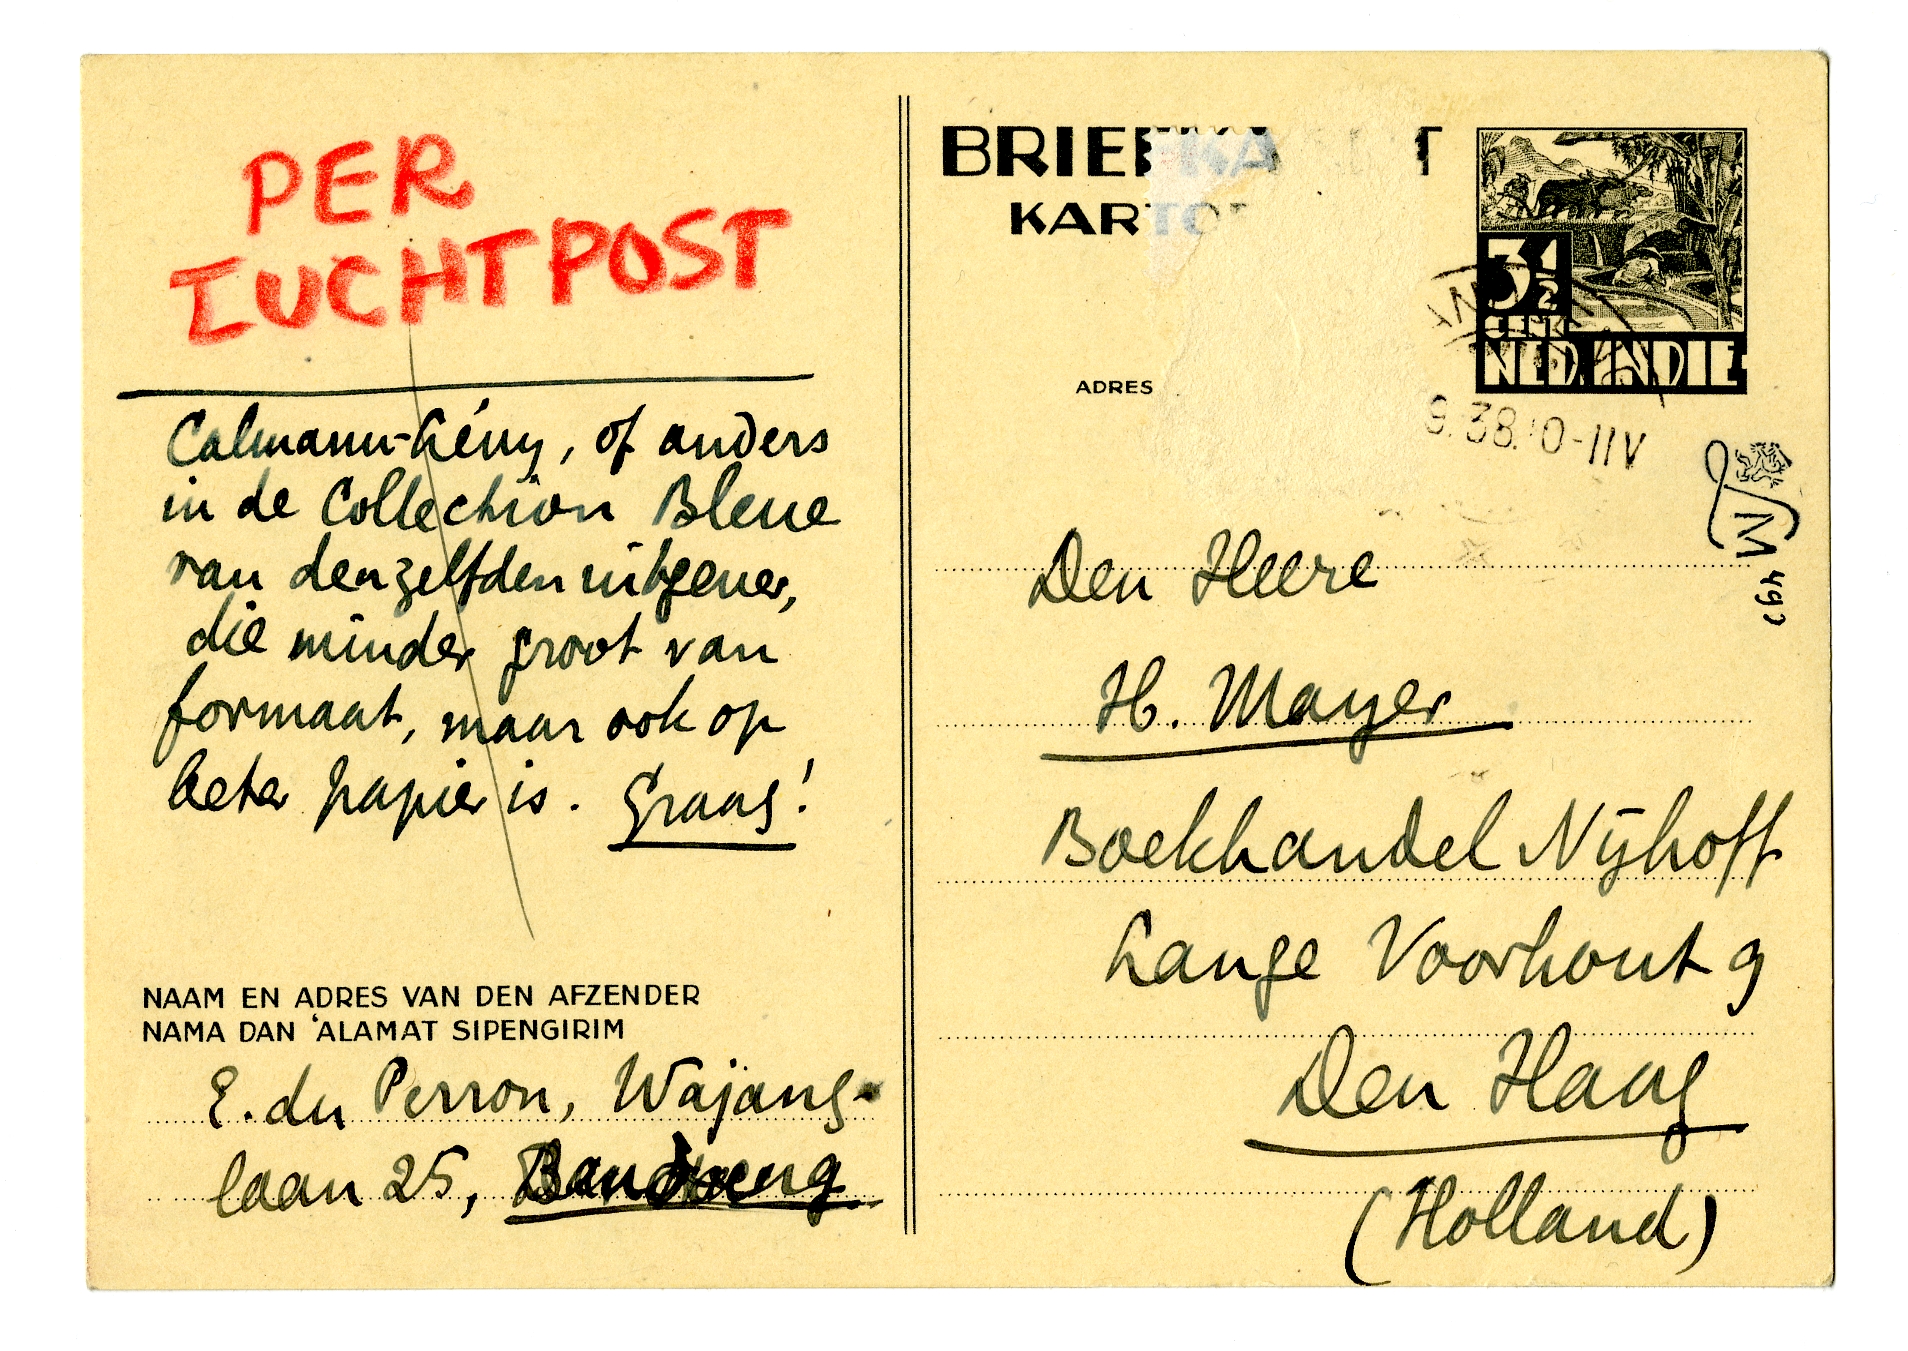 PER
LUCHTPOST
Calmann-Lévy, of anders
in de Collection Bleue
van denzelfden uitgever,
die minder groot van
formaat, maar ook op
beter papier is. Graag!
NAAM EN ADRES VAN DEN AFZENDER
NAMA DAN 'ALAMAT SIPENGIRIM
E. du Perron, Wajang-
laan 25, Bandoeng
BRIEFKA T
KARTO
3½
CENT
NED. INDIE
ADRES
9.38.10-11V
M 492
Den Heere
H. Mayer
Boekhandel Nijhoff
Lange Voorhout 9
Den Haag
(Holland)